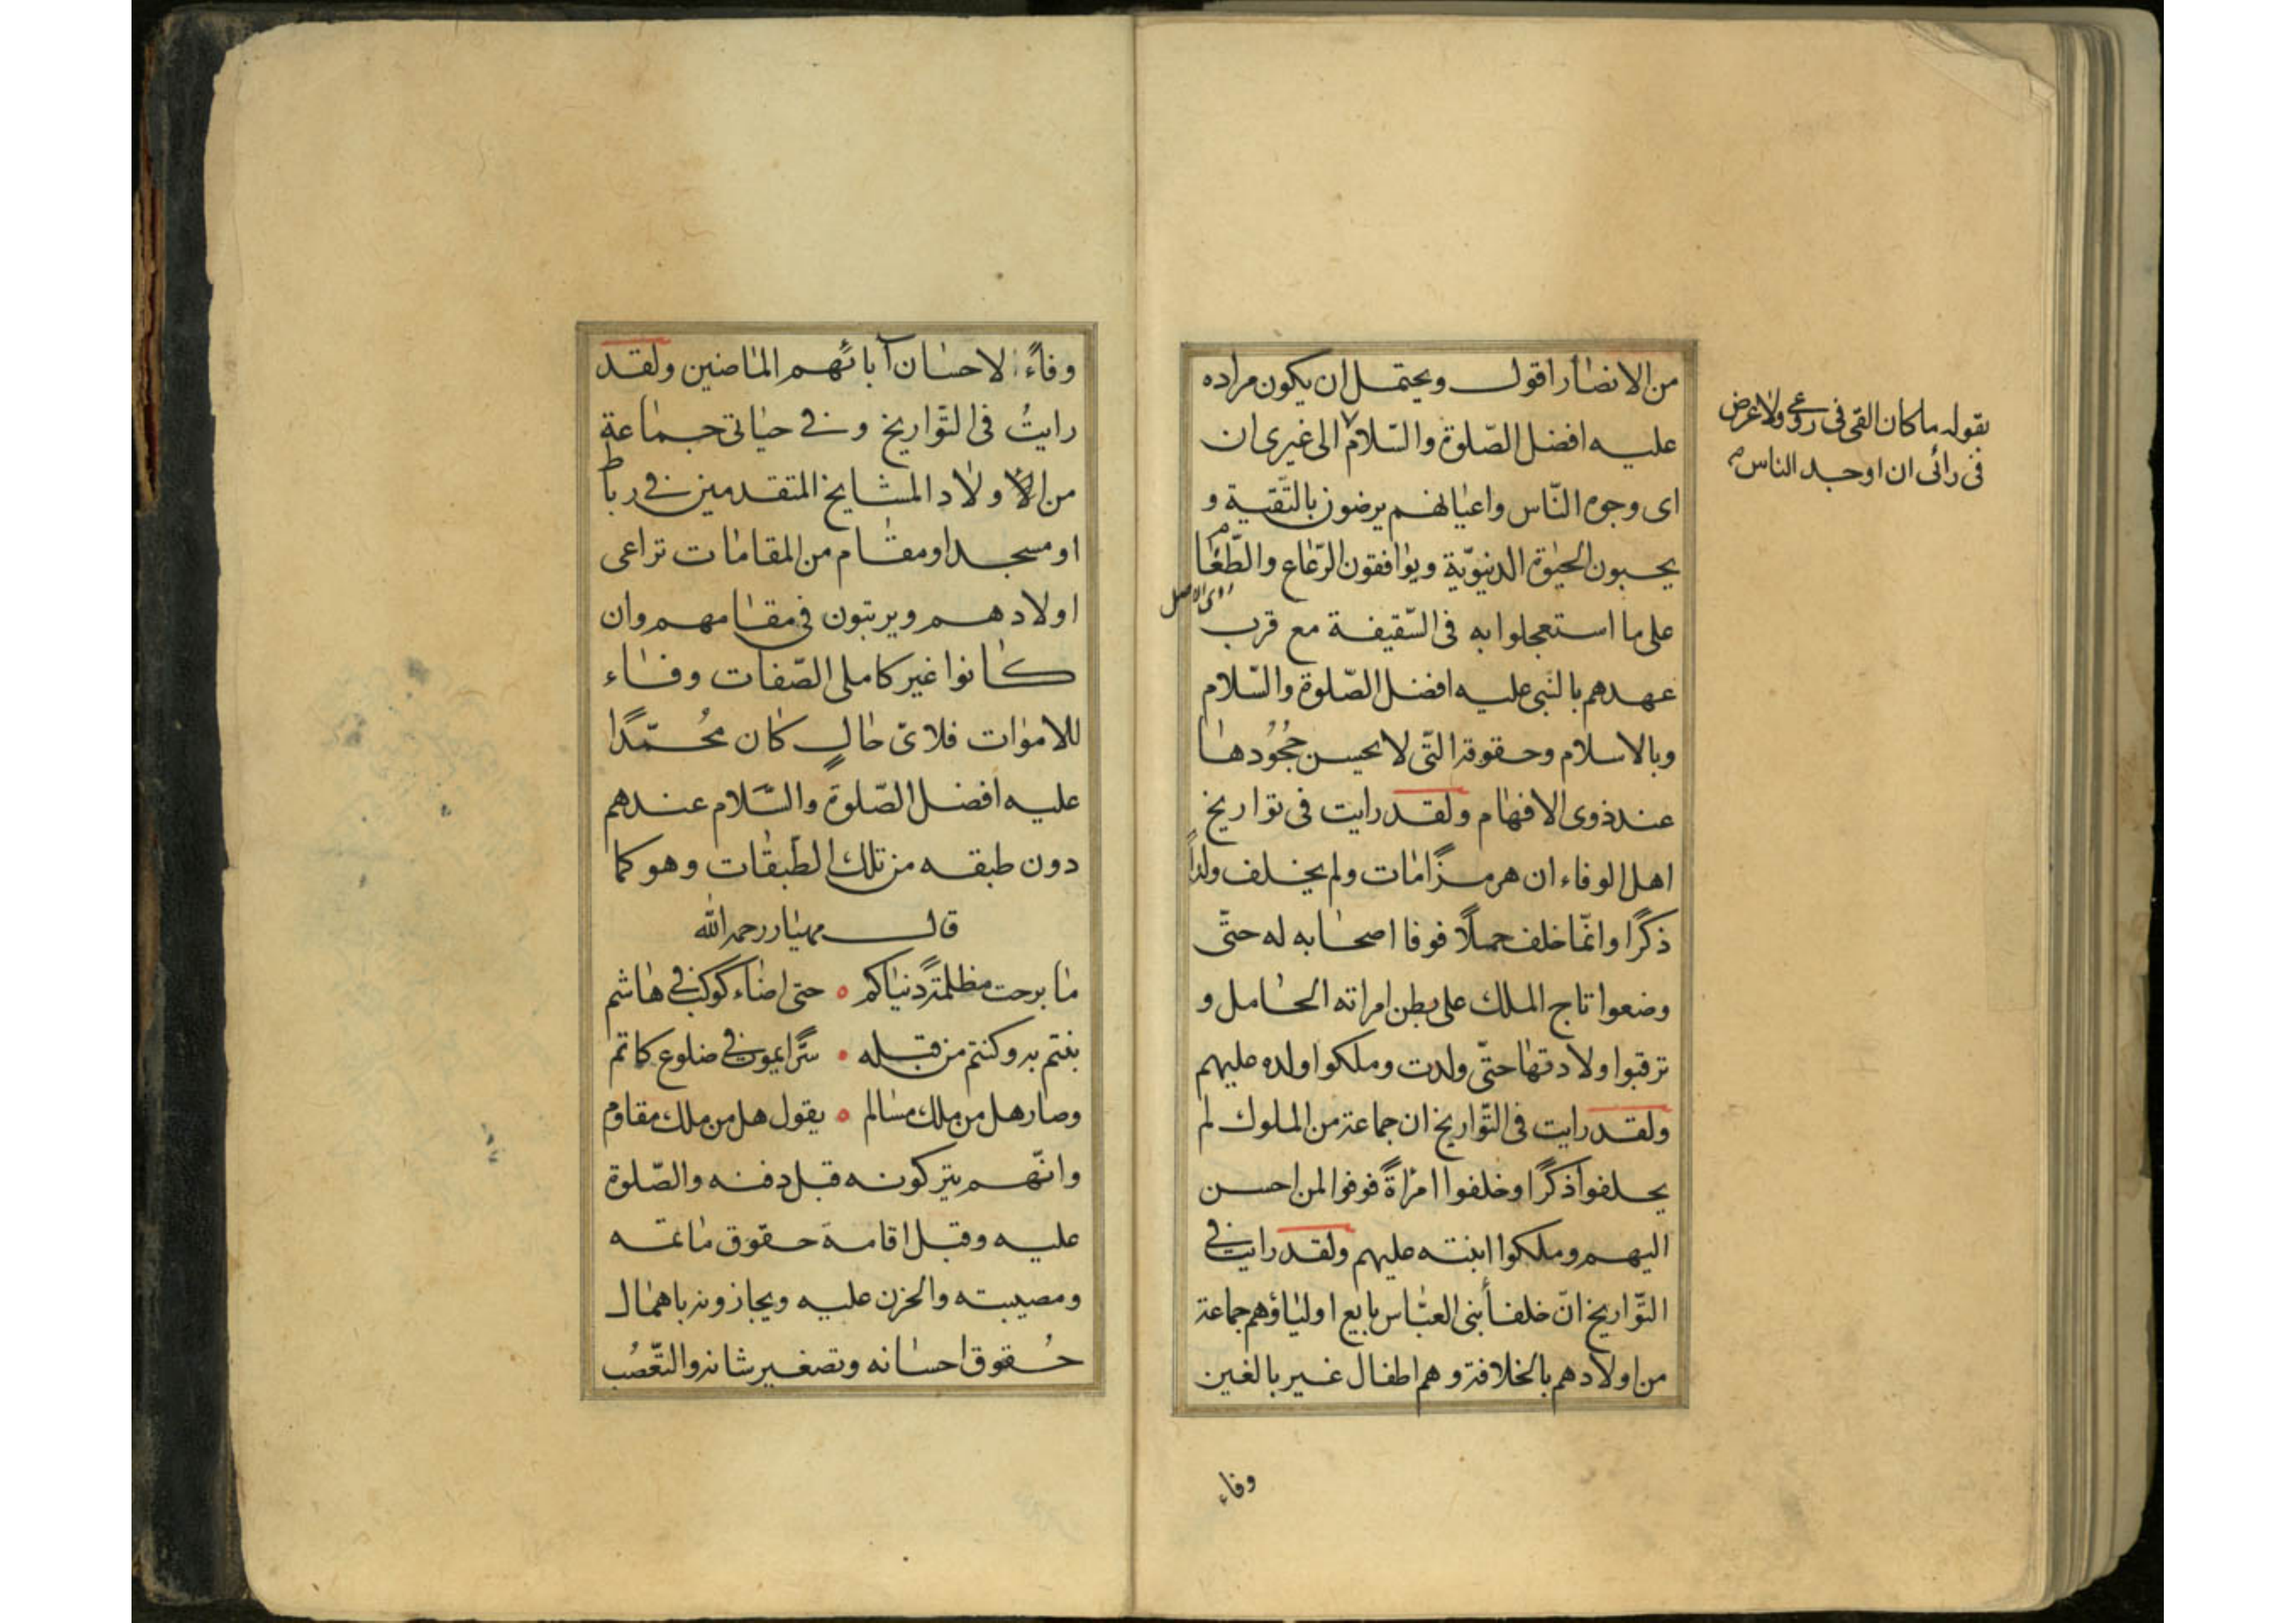 من الانصار اقول ويحتمل ان يكون مراده
عليه افضل الصّلوة والسّلام الى غيرى ان
اى وجوه النّاس واعيانهم يرضون بالتّقية و
يحبون الحيٰوة الدنيويّة ويوافقون الرّعاع والطّغام
على ما استعجلوا به فى السّقيفة مع قرب
عهدهم بالنبى عليه افضل الصّلوة والسّلام
وبالاسلام وحقوقه الّتى لا يحسن جُحُودها
عند ذوى الافهام ولقد رايت فى تواريخ
اهل الوفاء ان هرمزًا مات ولم يخلف ولدًا
ذكرًا وانّما خلف حملًا فوفا اصحابه له حتّى
وضعوا تاج الملك على بطن امراته الحامل و
ترقبوا ولادتها حتّى ولدت وملكوا ولده عليهم
ولقد رايت فى التّواريخ ان جماعة من الملوك لم
يخلفوا ذكرًا وخلفوا امراةً فوفوا لمن احسن
اليهم وملكوا ابنته عليهم ولقد رايت فى
التّواريخ انّ خلفأ بنى العبّاس بايع اولياؤهم جماعة
من اولادهم بالخلافة وهم اطفال غير بالغين
وفاء
بقوله ما كان القى فى روعى ولا عرض
فى رائى ان اوجد الناس
وفاءً لاحسان آبائهم الماضين ولقد
رايتُ فى التّواريخ وفى حياتى جماعة
من الاولاد المشايخ المتقدمين فى رباط
او مسجد او مقام من المقامات تراعى
اولادهم ويرتبون فى مقامهم وان
كانوا غير كاملى الصّفات وفاء
للاموات فلاىّ حالٍ كان مُحمّدًا
عليه افضل الصّلوة والسّلام عندهم
دون طبقه من تلك الطّبقات وهو كما
قال مهيار رحمه الله
ما برحت مظلمةً دنياكم ه حتى اضاء كوكب فى هاشم
بنتم به وكنتم من قبله • سرًّا يموت فى ضلوع كاتم
وصار هل من ملك مسالم ه يقول هل من ملك مقاوم
وانّهم يتركونه قبل دفنه والصّلوة
عليه وقبل اقامة حقوق ماتمه
ومصيبته والحزن عليه ويجازونه باهمال
حُقوق احسانه وتصغير شانه والتّعصُب